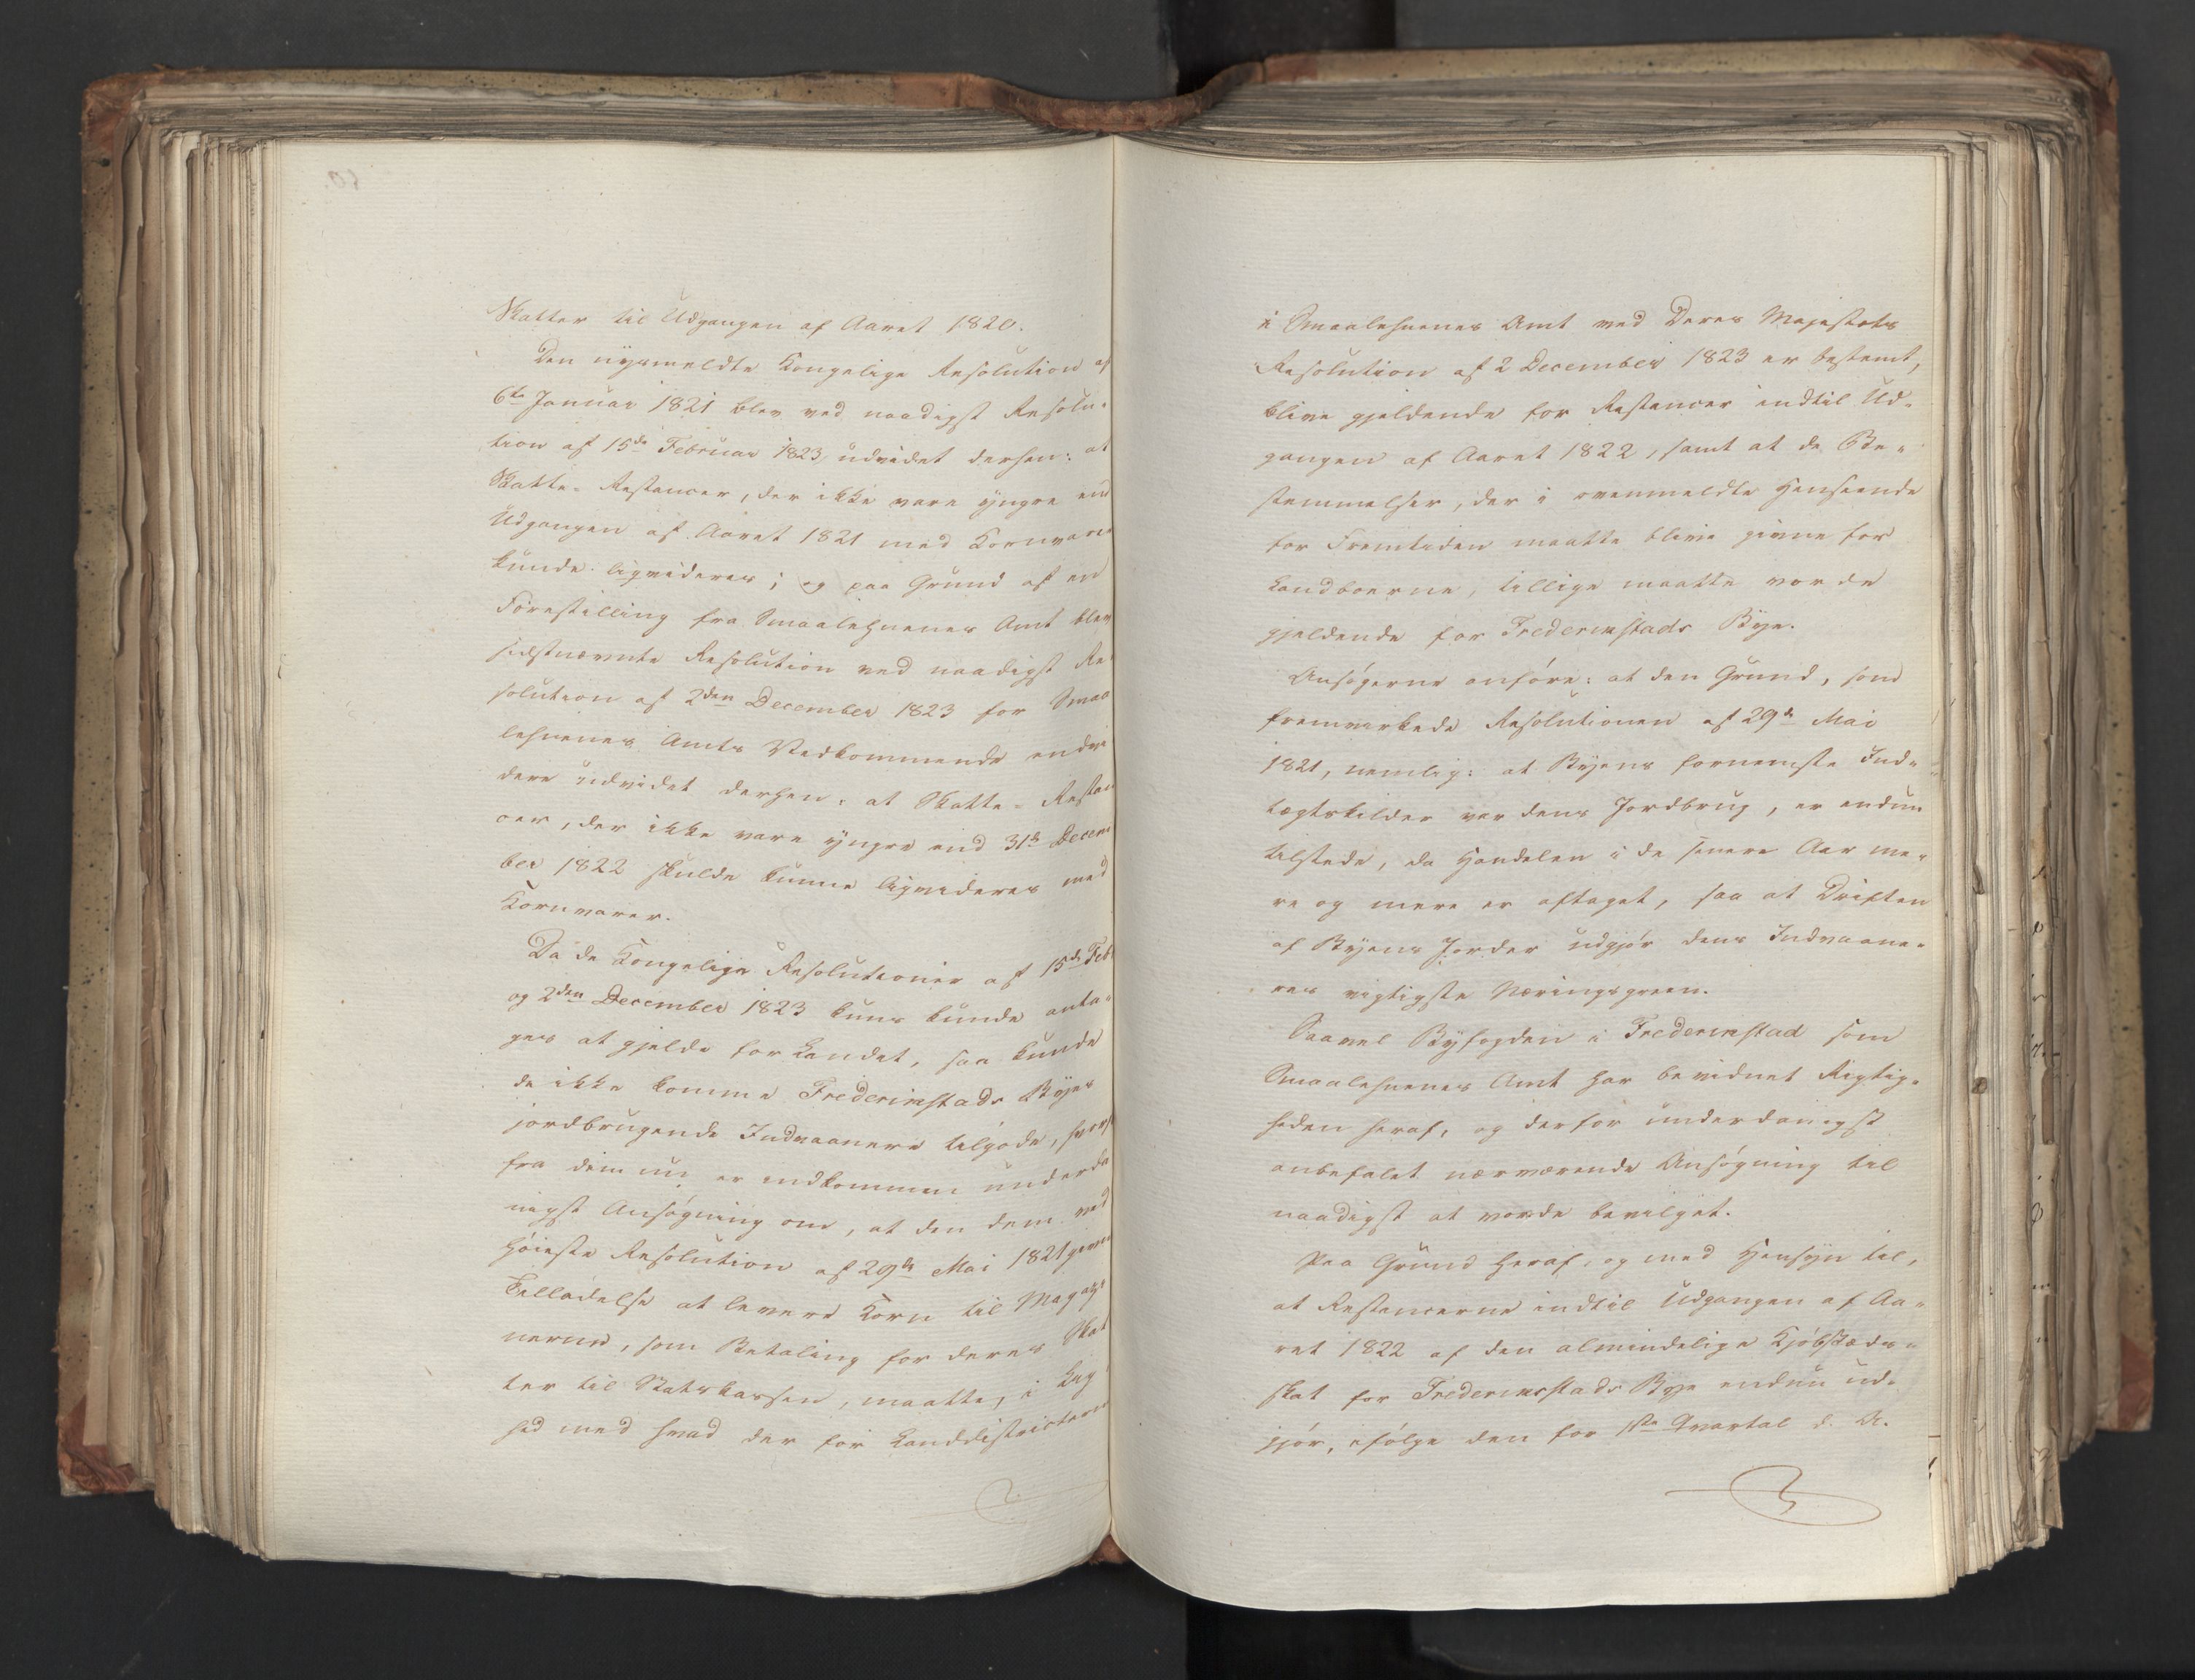 Skatter til Udgangen af Aaret 1820.
Den nysmeldte Kongelige Resolution af
6te Januar 1821 blev ved naadigst Resolu-
tion af 15de Februar 1823 udvidet derhen: at
Skatte-Restancer, der ikke vare yngre end
Udgangen af Aaret 1821 med Kornvarer
kunde liqvideres; og paa Grund af en
Forestilling fra Smaalehnenes Amt blev
sidstnævnte Resolution ved naadigst Re-
solution af 2den December 1823 for Smaa
lehnenes Amts Vedkommende endvi
dere udvidet derhen: at Skatte-Restan
cer, der ikke vare yngre end 31te Decem
ber 1822 skulde kunne liqvideres med
Kornvarer.
Da de Kongelige Resolutioner af 15de Feb
og 2den December 1823 kuns kunde anta-
ges at gjelde for Landet, saa kunde
de ikke komme Fredericstads Byes
jordbrugende Indvaanere tilgode, hvorfor
fra dem nu er indkommen underda
nigst Ansøgning om, at den dem ved
høieste Resolution af 29de Mai 1821 givne
Tilladelse at levere Korn til Magazi
nerne, som Betaling for deres Skat
ter til Statskassen, maatte, i Lig
hed med hvad der for Landdistricterne
i Smaalehnenes Amt ved Deres Majestæts
Resolution af 2 December 1823 er bestemt,
blive gjeldende for Restancer indtil Ud-
gangen af Aaret 1822, samt at de Be-
stemmelser, der i ovenmeldte Henseende
for Fremtiden maatte blive givne for
Landboerne, tillige maatte vorde
gjeldende for Fredericstads Bye.
Ansøgerne anføre: at den Grund, som
fremvirkede Resolutionen af 29de Mai
1821, nemlig: at Byens fornemste Ind-
tægtskilder var dens Jordbrug, er endnu
tilstede, da Handelen i de senere Aar me-
re og mere er aftaget, saa at Driften
af Byens Jorder udgjør dens Indvaane-
res vigtigste Næringsgreen.
Saavel Byfogden i Fredericstad som
Smaalehnenes Amt har bevidnet Rigtig-
heden heraf, og derfor underdanigst
anbefalet nærværende Ansøgning til
naadigst at vorde bevilget.
Paa Grund heraf, og med Hensyn til,
at Restancerne indtil Udgangen af Aa-
ret 1822 af den almindelige Kjøbstæds-
skat for Fredericsstads Bye endnu ud-
gjør, ifølge den for 1ste Qvartal d. A.